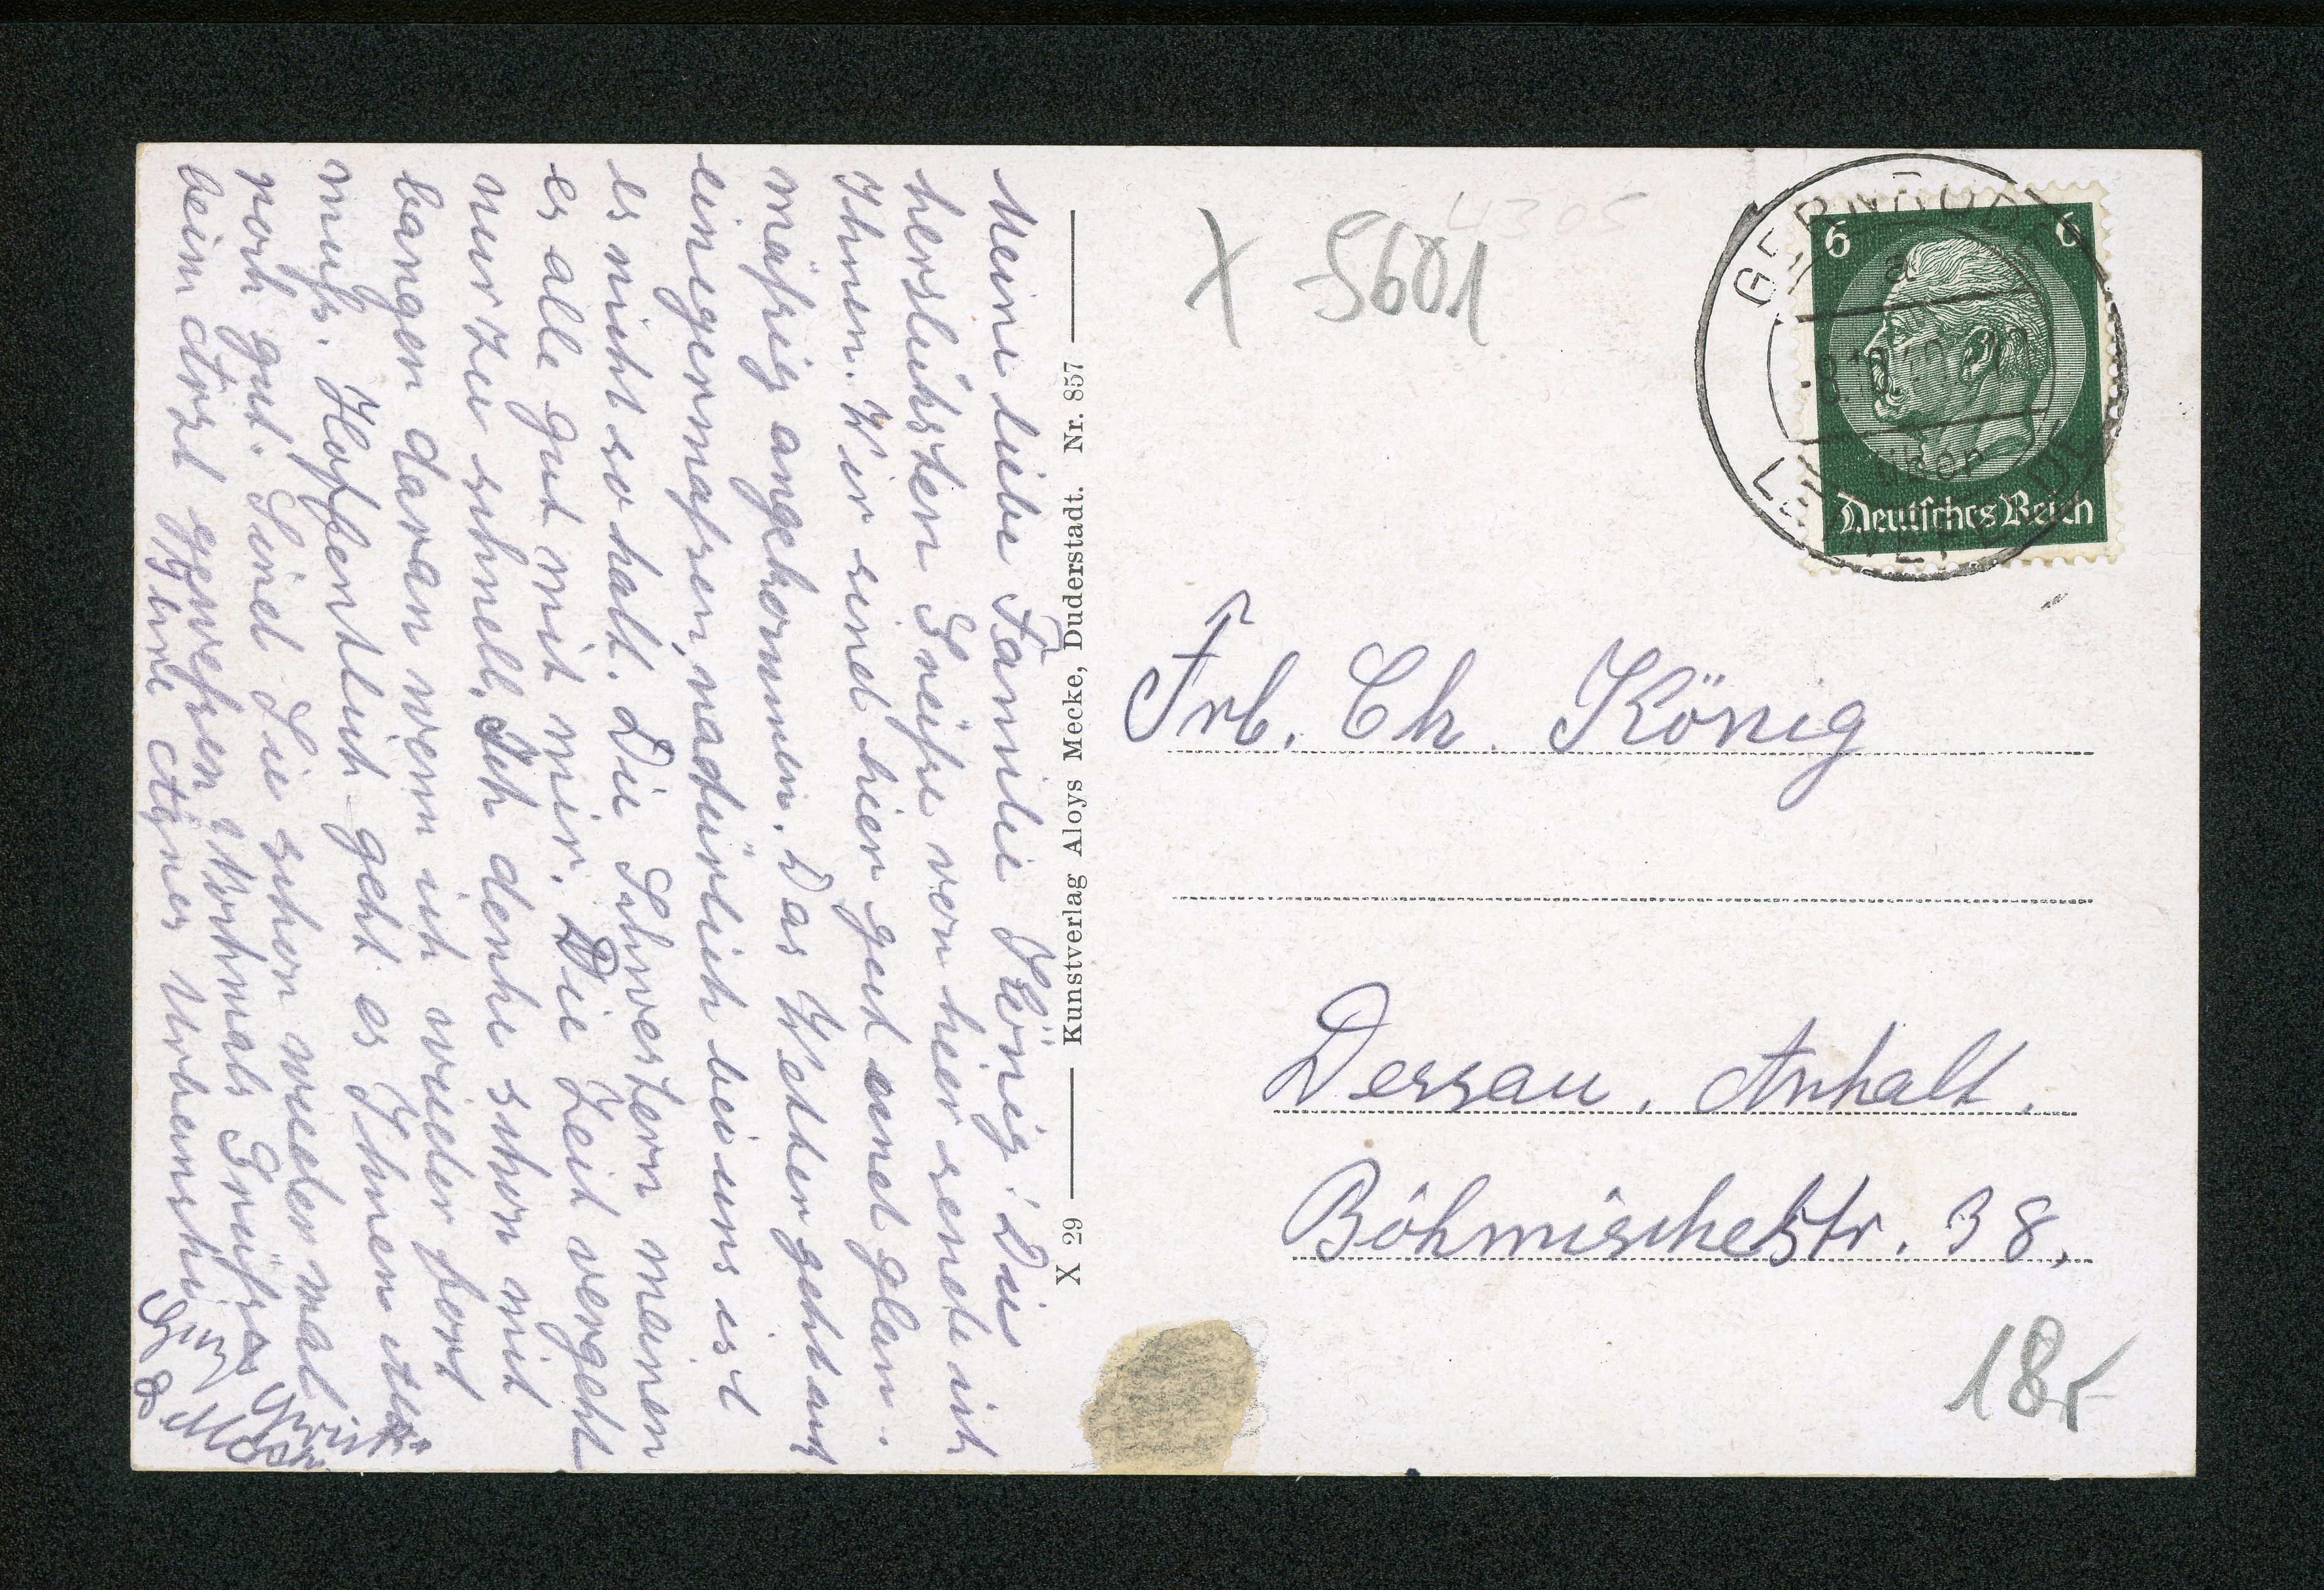 Meine liebe Familie König! Die
herzlichsten Grüße von hier sende ich
Ihnen. Wir sind hier gut und plan-
mäßig angekommen. Das Wetter geht auch
einigermaßen, nadürlich bei uns ist
es nicht so halt. Die Schwestern meinen
es alle gut mit mir. Die Zeit vergeht
nur zu schnell. Ich denke schon mit
bangen daran wenn ich wieder fort
muß. Hoffentlich geht es Ihnen
noch gut. Sind Sie schon wieder mal
beim Arzt gewesen. Nochmals Grüße
Ihre Agnes
Gruß
X 29 Kunstverlag Aloys Mecke, Duderstadt. Nr. 857
4305
X 5601
6 6
Deutsches Reich
GERNRODE
a
8.10.
Frl. Ch. König
Dessau. Anhalt.
Böhmischestr. 38.
18